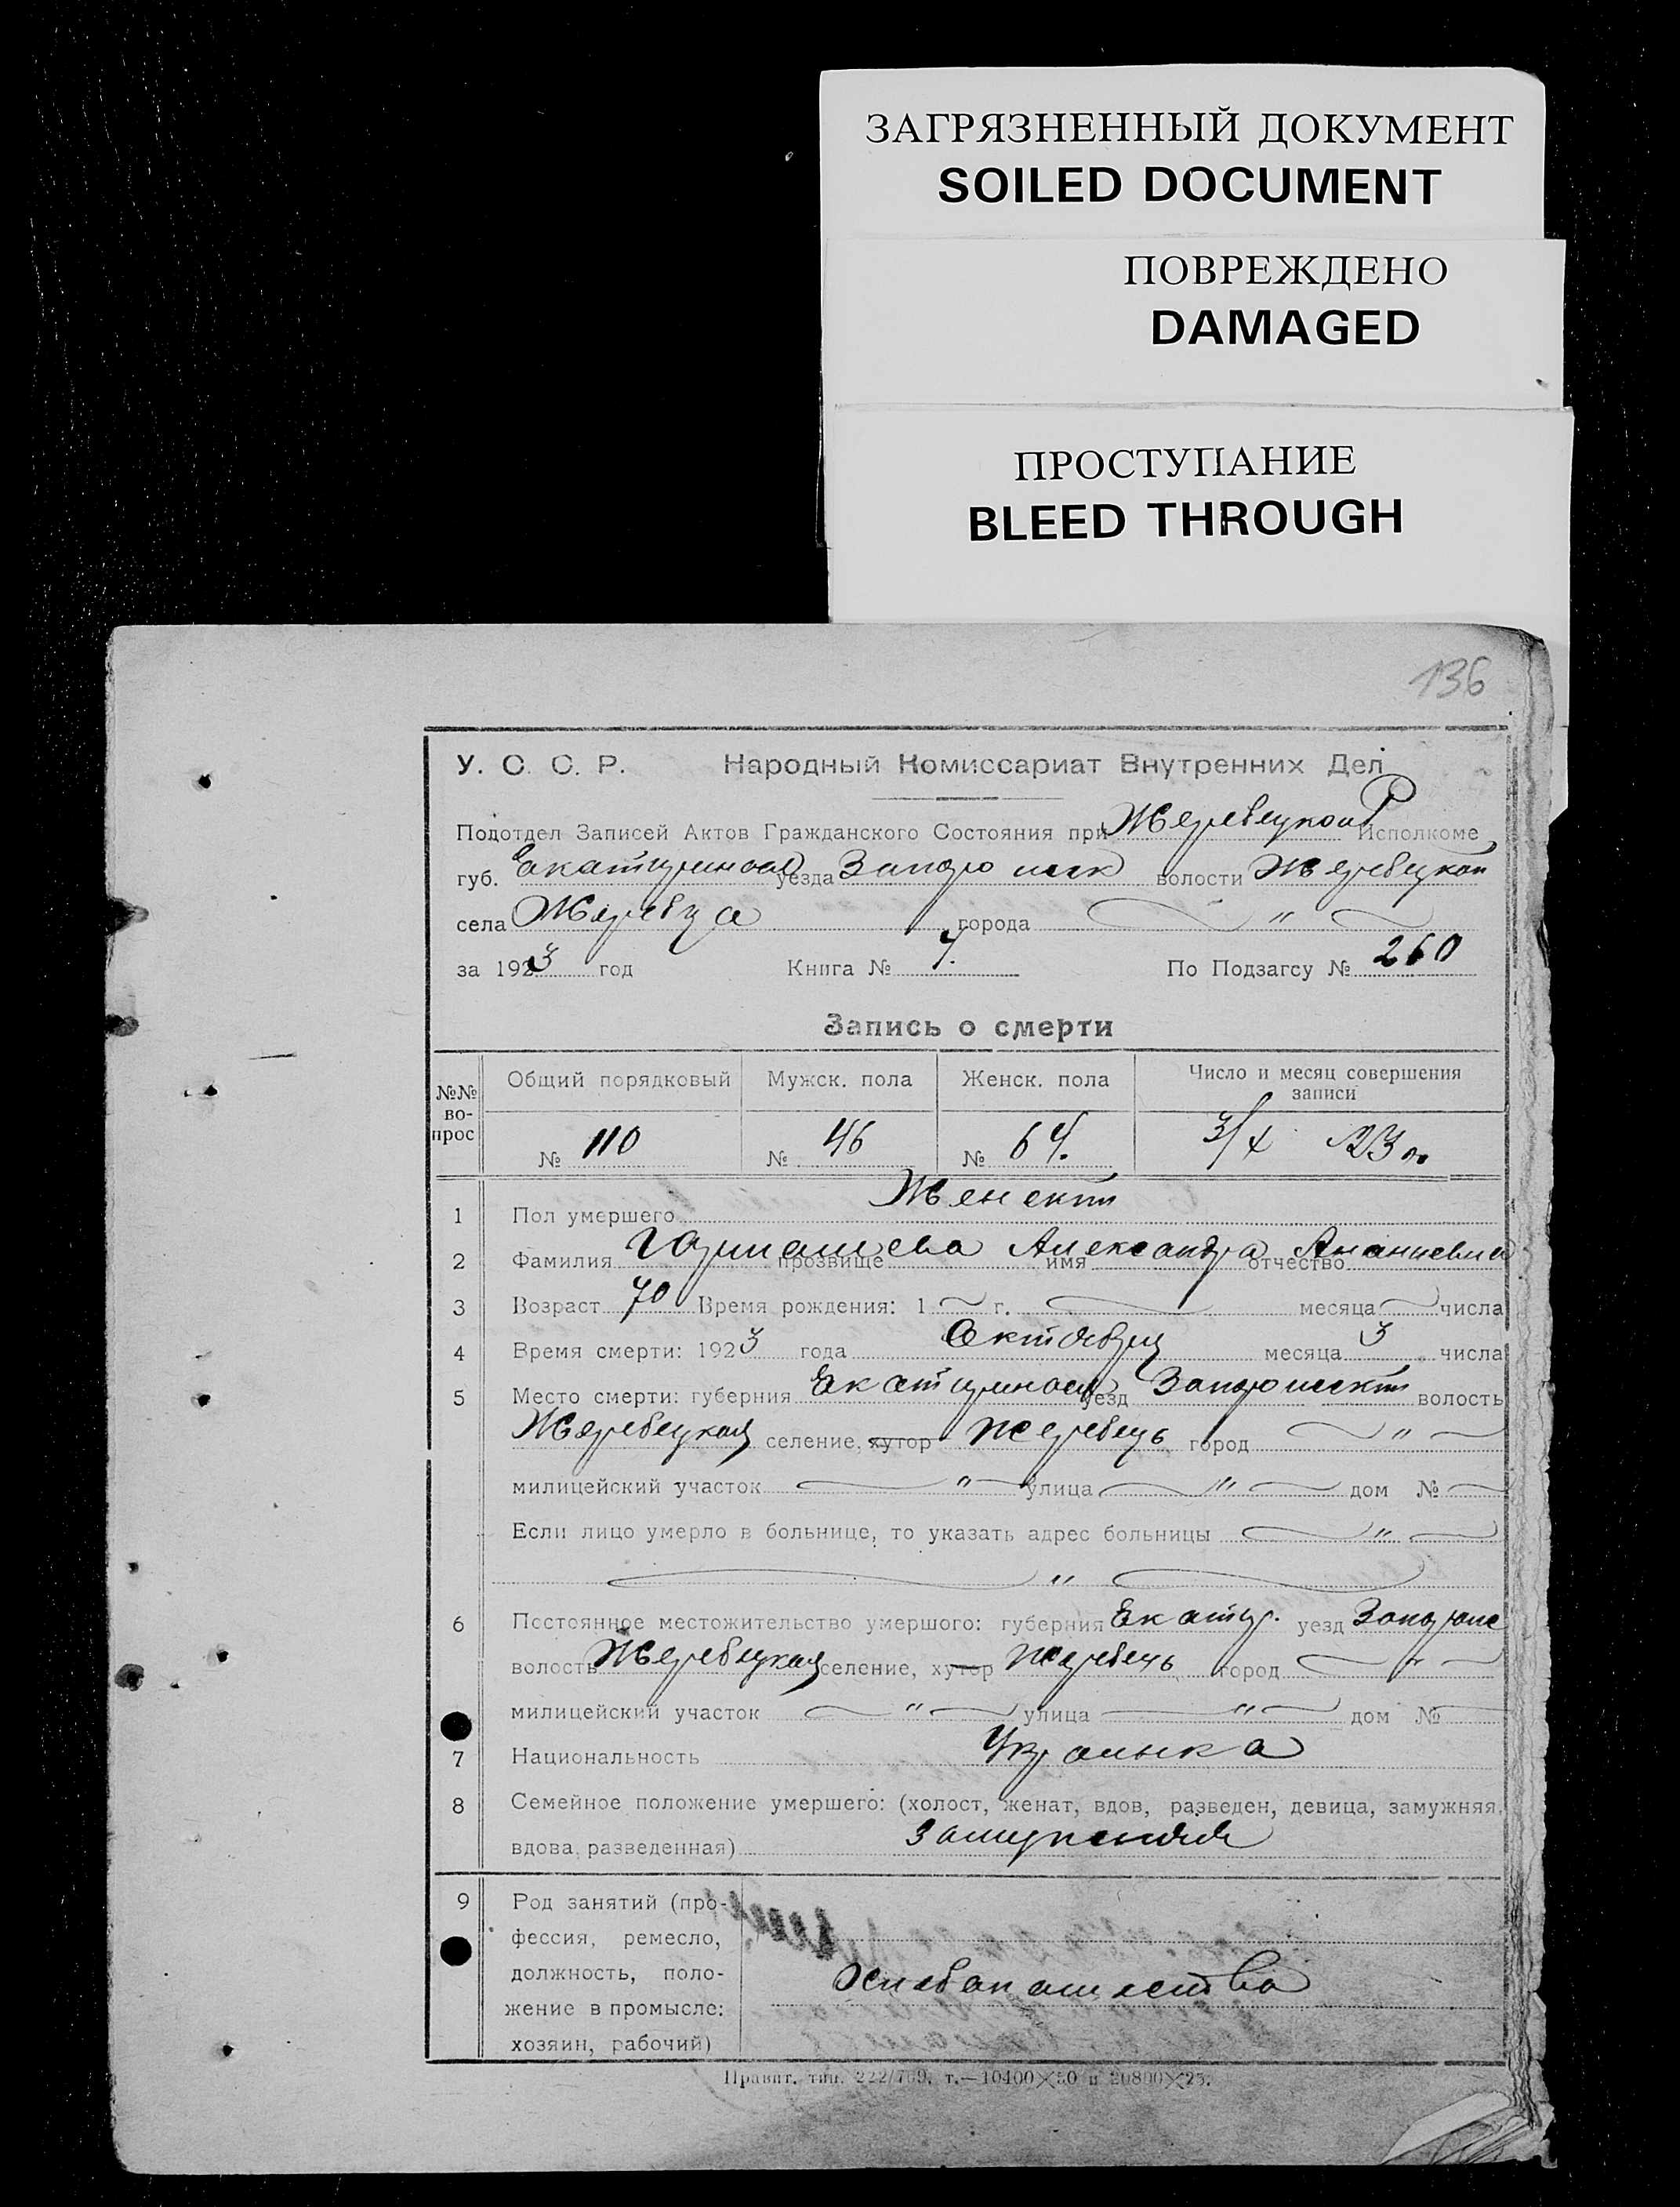 ЗАГРЯЗНЕННЫЙ ДОКУМЕНТ
SOILED DOCUMENT
ПОВРЕЖДЕНО
DAMAGED
ПРОСТУПАНИЕ
BLEED THROUGH
136
У. С. С. Р. Народный Комиссариат Внутренних Дел
Подотдел Записей Актов Гражданского Состояния при Жеребецком Р Исполкоме
губ. Екатеринослав уезда Запорожск волости Жеребецкой
села Жеребца города "
за 1923 год Книга № По Подзагсу № 260
Запись о смерти
№№ вопрос Общий порядковый Мужск. пола Женск. пола Число и месяц совершения записи
№ 110 № 46 № 64. 3/X 23 г.
1 Пол умершего Женский
2 Фамилия прозвище имя Александра отчество Ананиевна
3 Возраст 70 Время рождения: 1 г. месяца числа
4 Время смерти: 1923 года Октября месяца 3 числа
5 Место смерти: губерния Екатеринослав уезд Запорожский волость
Жеребецкая селение, хутор Жеребець город "
милицейский участок " улица " дом №
Если лицо умерло в больнице, то указать адрес больницы "
"
6 Постоянное местожительство умершого: губерния Екатер. уезд Запорож
волость Жеребецкая селение, хутор Жеребець город "
милицейский участок " улица " дом №
7 Национальность Украинка
8 Семейное положение умершего: (холост, женат, вдов, разведен, девица, замужняя,
вдова, разведенная) замужняя
9 Род занятий (про-
фессия, ремесло,
должность, поло-
жение в промысле: Хлебопашества
хозяин, рабочий)
Правит. тип. 222/709. т.—10400×50 и 20800×25.